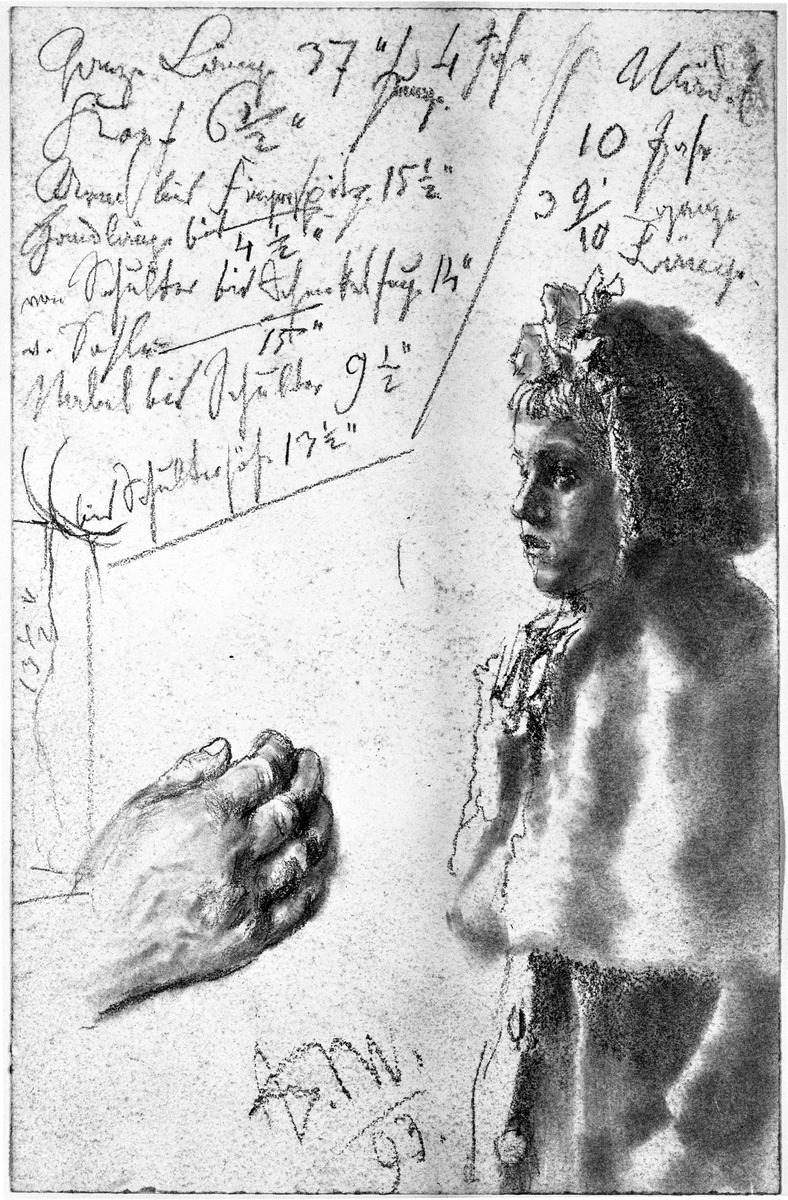 Ganze Länge 37" 4 Jahr
Junge.
Kopf 6 1/2"
Arm bis Fingerspitz. 15 1/2"
Handlänge 4 1/2"
von Schulter bis
v. Sohle 15"
Nabel bis Schulter 9 1/2"
bis Schulterhöh. 13 1/2"
13 1/2"
Mäd.
10 Jahr
3 9/10 ganze
Länge.
A.M.
93.